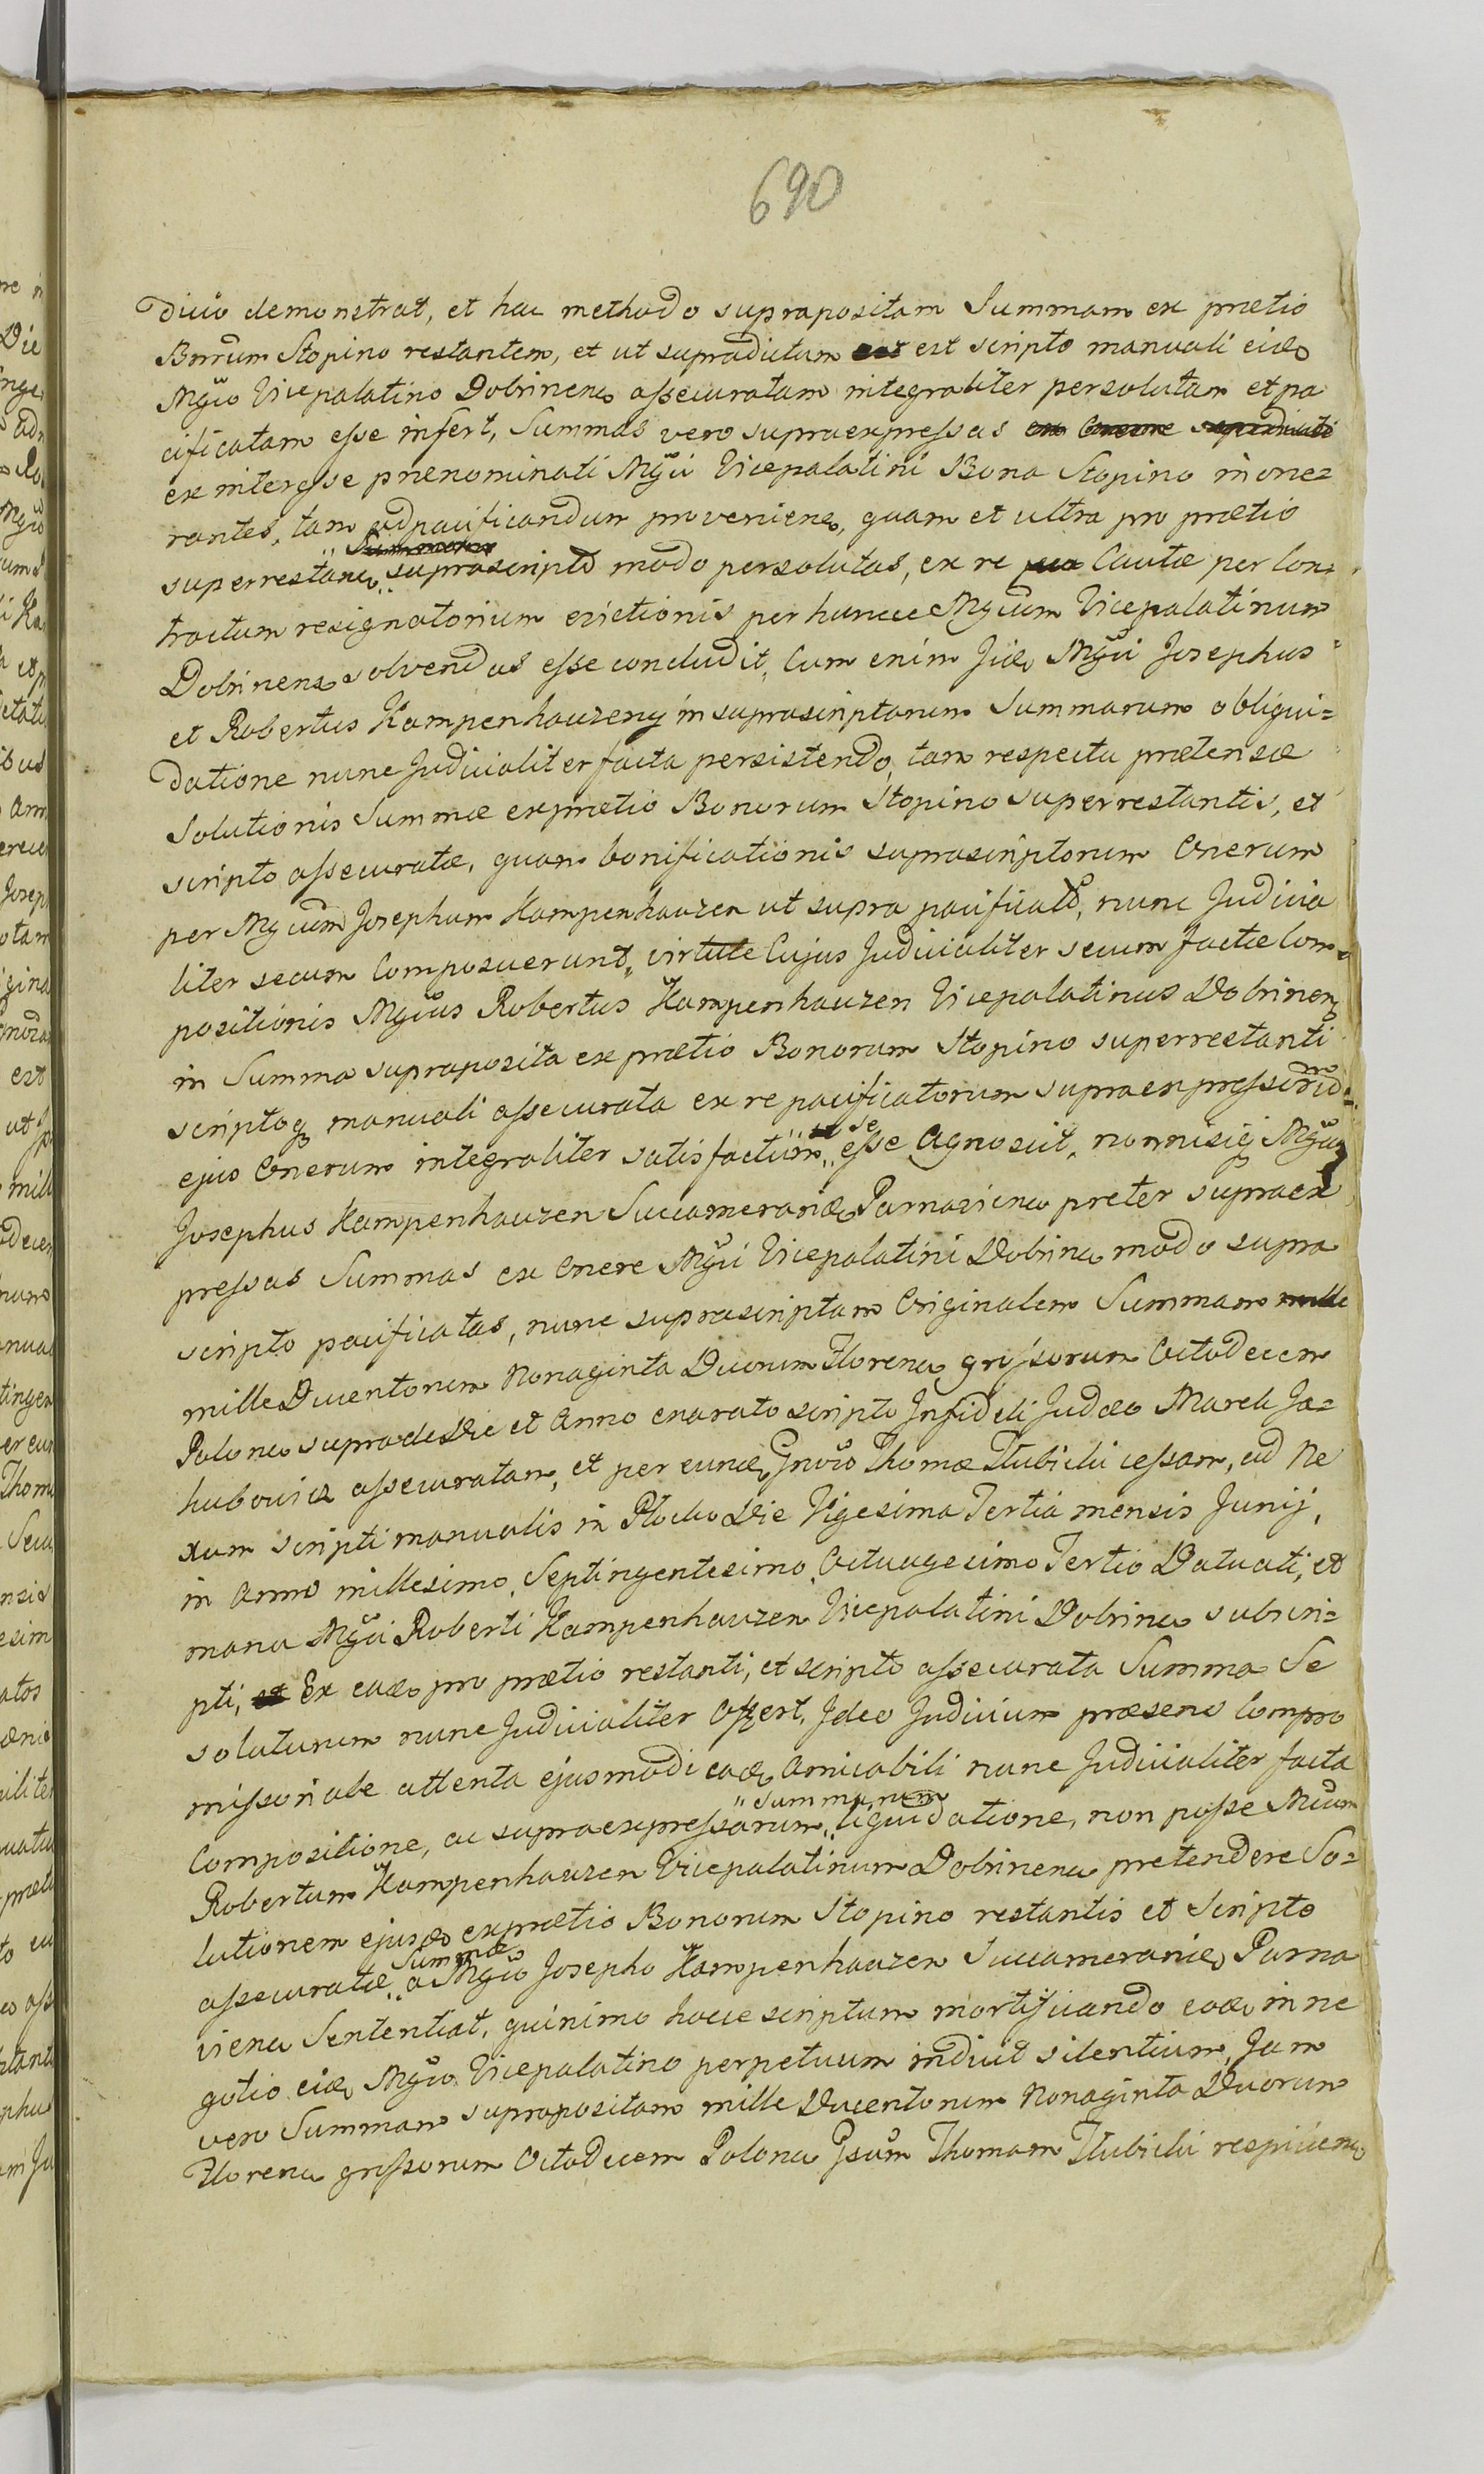 690
dicio demonstrat, et hac methodo suprapositam Summam ex prætio
Bnrum Stopino restantem, et ut supradictum est scripto manuali eid
Mgio Vicepalatino Dobrinen assecuratam integraliter persolutam et pa
cificatam esse infert, Summas vero supraexpressas ex Onere
ex interesse prænominati Mgci Vicepalatini Bona Stopino inone=
rantes, tam ad pacificandum provenien, quam et ultra pro prætio
superrestan, suprascripto modo persolutas, ex re Cautæ per Con=
tractum resignatorium evictionis per huncce Mgcum Vicepalatinum
Dobrinen solvendas esse concludit, Cum enim Iid Mgci Josephus
et Robertus Kampenhauzeny in suprascriptarum Summarum obliqui=
datione nunc Judicialiter facta persistendo, tam respectu prætensæ
Solutionis Summæ ex prætio Bonorum Stopino superrestantis, et
scripto assecuratæ, quam bonificationis suprascriptorum Onerum
per Mgcum Josephum Kampenhauzen ut supra pacificato, nunc Judicia
liter secum Composuerunt, virtute Cujus Judicialiter secum factæ Com=
positionis Mgcus Robertus Kampenhauzen Vicepalatinus Dobrinen
in Summa supraposita ex prætio Bonorum Stopino superrestanti
scriptoq manuali assecurata ex re pacificatorum supraexpressorum
ejus Onerum integraliter satisfactum se esse Agnoscit, nonnisiq Mgcus
Josephus Kampenhauzen Succamerarid Parnavien preter supraex
pressas Summas ex Onere Mgci Vicepalatini Dobrinen modo supra
scripto pacificatas, nunc suprascriptam Originalem Summam mille
mille Ducentorum Nonaginta Duorum Floren grossorum Octodecem
Polon supra de Die et Anno enarato scripto Infideli Judæo Marek Ja=
kubowicz assecuratam, et per eund Gnoso Thomæ Hubicki cessam, ad Ne
xum scripti manualis in Plocko Die Vigesima Tertia mensis Junij,
in Anno millesimo Septingentesimo Octuagesimo Tertio Datuati, et
manu Mgci Roberti Kampenhauzen Vicepalatini Dobrinen subscri=
pti, Ex ead pro prætio restanti, et scripto assecurata Summa Se
soluturum nunc Judicialiter Offert, Ideo Judicium præsens Compro
missoriale attenta ejusmodi ead Amicabili nunc Judicialiter facta
Compositione, ac supraexpressarum Summarum liquidatione, non posse Mcum
Robertum Kampenhauzen Vicepalatinum Dobrinen pretendere So=
lutionem ejusd ex prætio Bonorum Stopino restantis et Scripto
assecuratæ Summæ a Mgco Josepho Kampenhauzen Succamerarid Parna
vien Sententiat, quinimo hocce scriptum mortificando ead in ne
gotio eid Mgco Vicepalatino perpetuum indicit silentium, Jam
vero Summam suprapositam mille Ducentorum Nonaginta Duorum
Floren grossorum Octodecem Polon Gsum Thomam Hubicki respicien